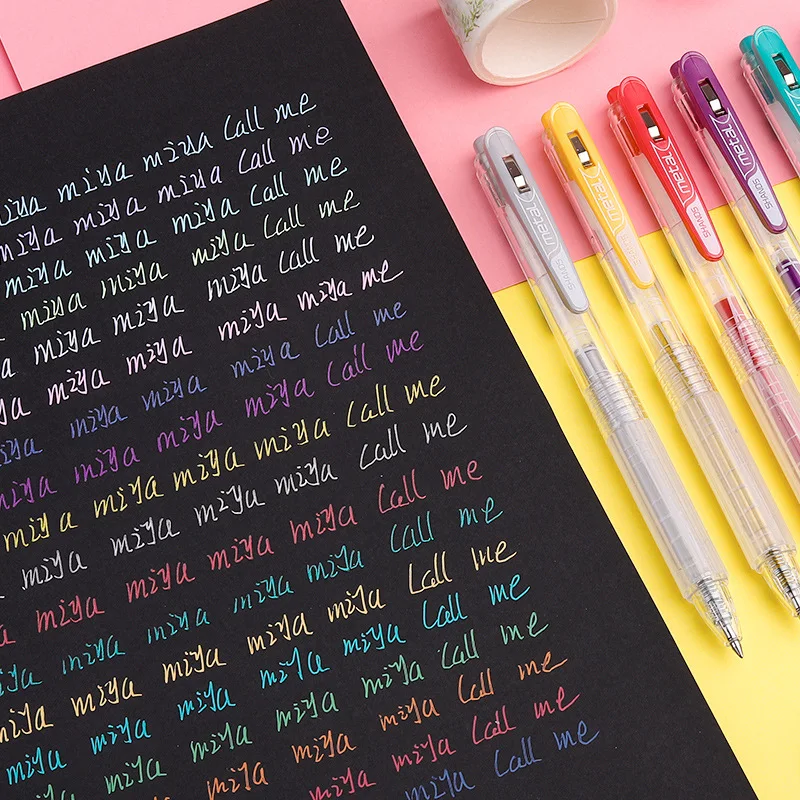 miya miya miya Call me
miya miya miya Call me
miya miya miya Call me
miya miya miya Call me
miya miya miya Call me
miya miya miya miya me
miya miya miya miya Call me
miya miya miya miya Call me
miya miya miya miya Call me
miya miya miya miya Call me
miya miya miya miya Call me
miya miya miya miya Call me
miya miya miya miya miya Call me
miya miya miya miya miya Call me
miya miya miya miya Call me
miya miya miya Call me
miya miya Call me
miya Call me
metal
metal
metal SHANOS
metal SHANOS